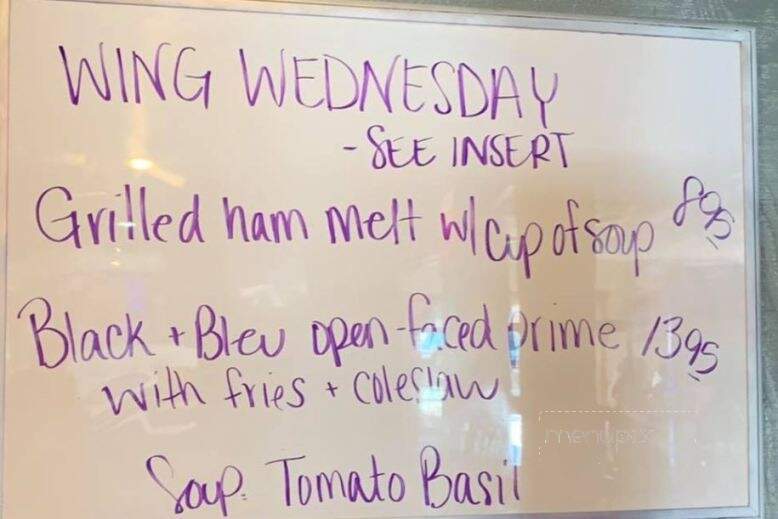 WING WEDNESDAY
- SEE INSERT
Grilled ham melt w/ cup of soup 8 95
Black + Bleu open-faced prime 13 95
with fries + coleslaw
Soup: Tomato Basil
menupix